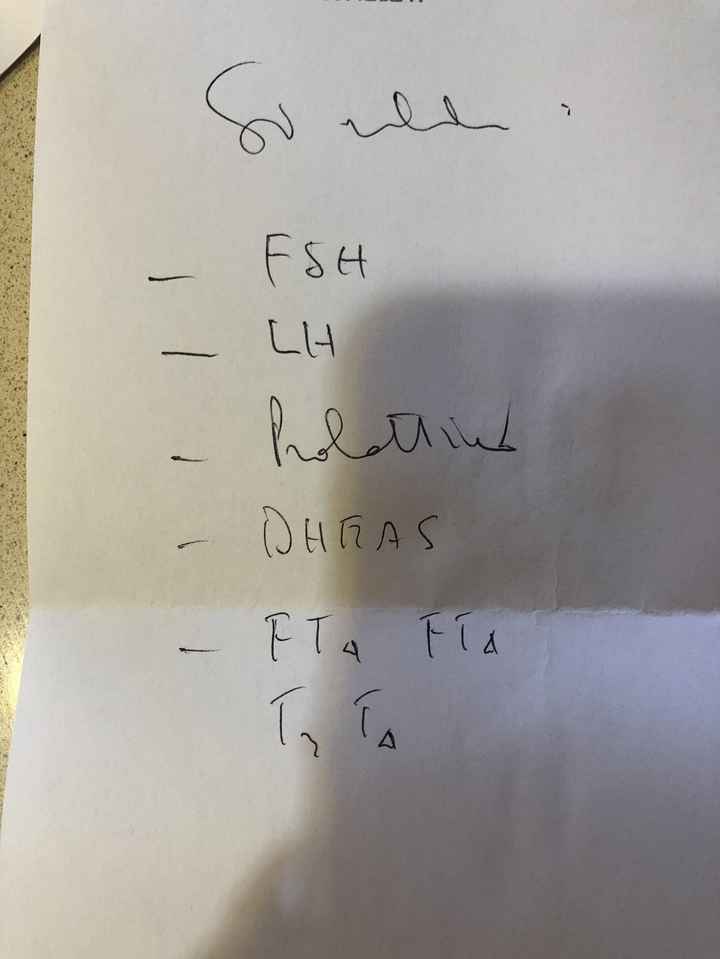 - FSH
- LH
- Prolattina
- DHEAS
- FT4 FT4
T3 T4